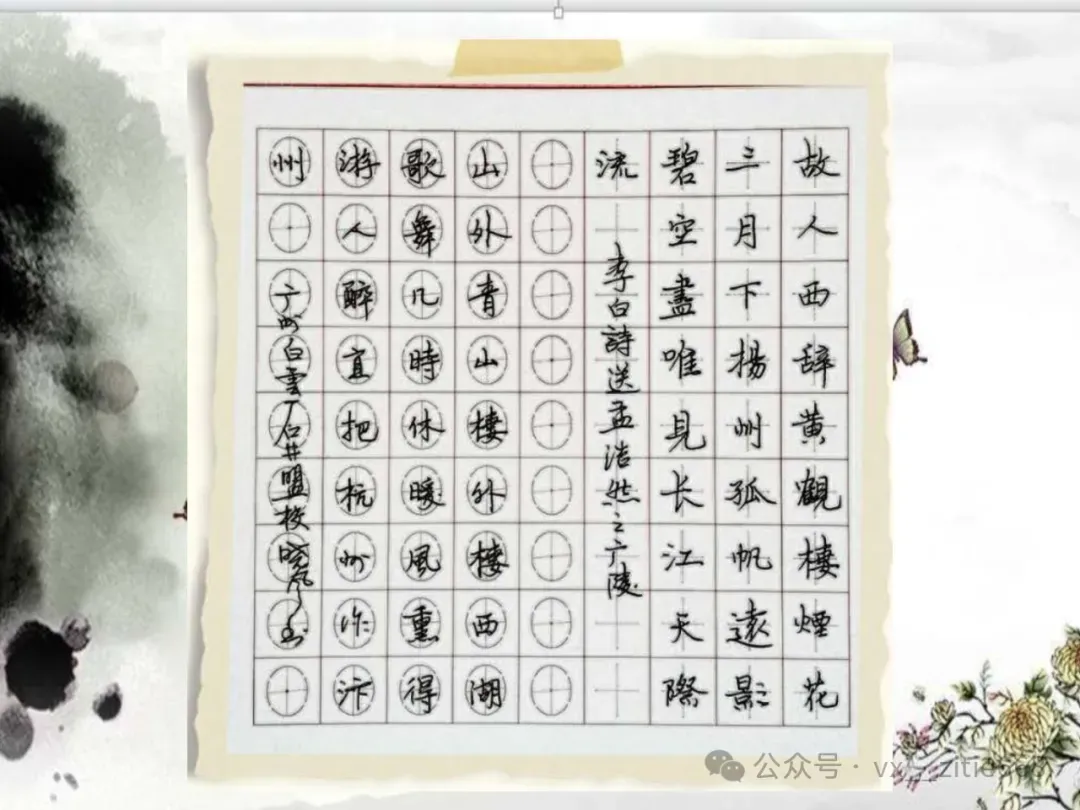 故人西辞黄觀樓煙花
三月下揚州孤帆遠影
碧空盡唯見长江天際
流 李白詩送孟浩然之广陵
山外青山樓外樓西湖
歌舞几時休暖風熏得
游人醉直把杭州作汴
州 广州白雲石井盟校晓风书
公众号 ·